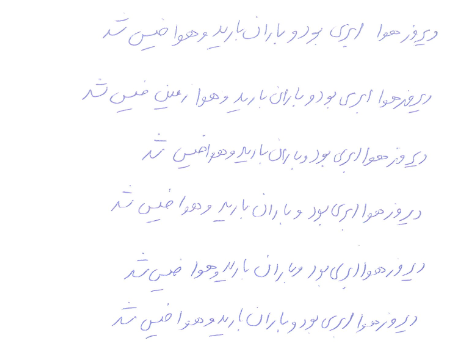 دیروز هوا ابری بود و باران بارید و هوا خیس شد
دیروز هوا ابری بود و باران بارید و هوا زمین خیس شد
دیروز هوا ابری بود و باران بارید و هوا خیس شد
دیروز هوا ابری بود و باران بارید و هوا خیس شد
دیروز هوا ابری بود و باران بارید و هوا خیس شد
دیروز هوا ابری بود و باران بارید و هوا خیس شد